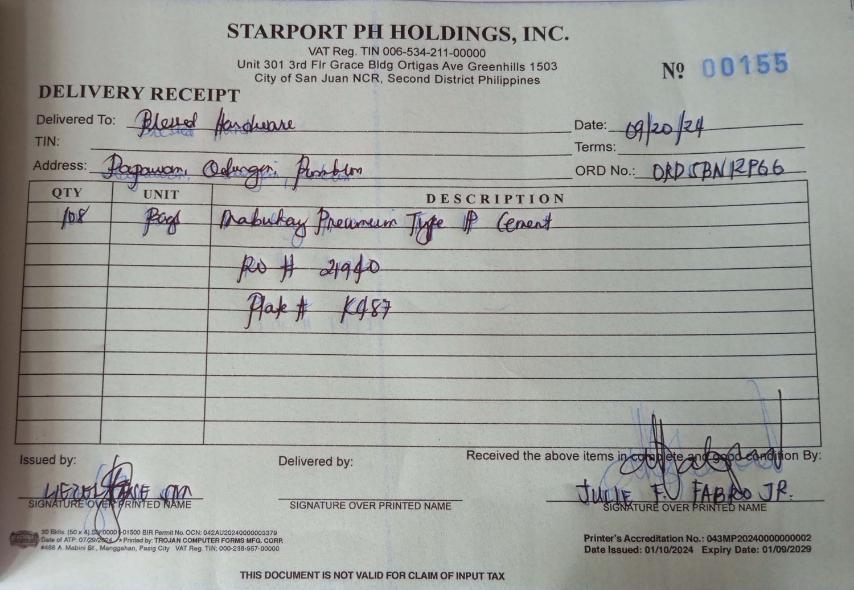 STARPORT PH HOLDINGS, INC.
VAT Reg. TIN 006-534-211-00000
Unit 301 3rd Flr Grace Bldg Ortigas Ave Greenhills 1503
City of San Juan NCR, Second District Philippines
Nº 00155
DELIVERY RECEIPT
Delivered To: Blessed Hardware
Date: 09/20/24
TIN:
Terms:
Address: Odiongan, Romblon
ORD No.: ORDSBN12P66
QTY UNIT DESCRIPTION
108 Bags Mabuhay Premium Type Cement
PO # 21940
Plate # K987
Issued by:
Delivered by:
Received the above items in complete and good condition By:
JULIE F. FABRO JR.
SIGNATURE OVER PRINTED NAME
SIGNATURE OVER PRINTED NAME
SIGNATURE OVER PRINTED NAME
30 Bklts. (50 x 4) 01500 BIR Permit No. OCN: 042AU20240000003379
Date of ATP: 07/29/2024 Printed by: TROJAN COMPUTER FORMS MFG. CORP.
#488 A. Mabini St., Manggahan, Pasig City VAT Reg. TIN: 000-238-957-00000
Printer's Accreditation No.: 043MP20240000000002
Date Issued: 01/10/2024 Expiry Date: 01/09/2029
THIS DOCUMENT IS NOT VALID FOR CLAIM OF INPUT TAX